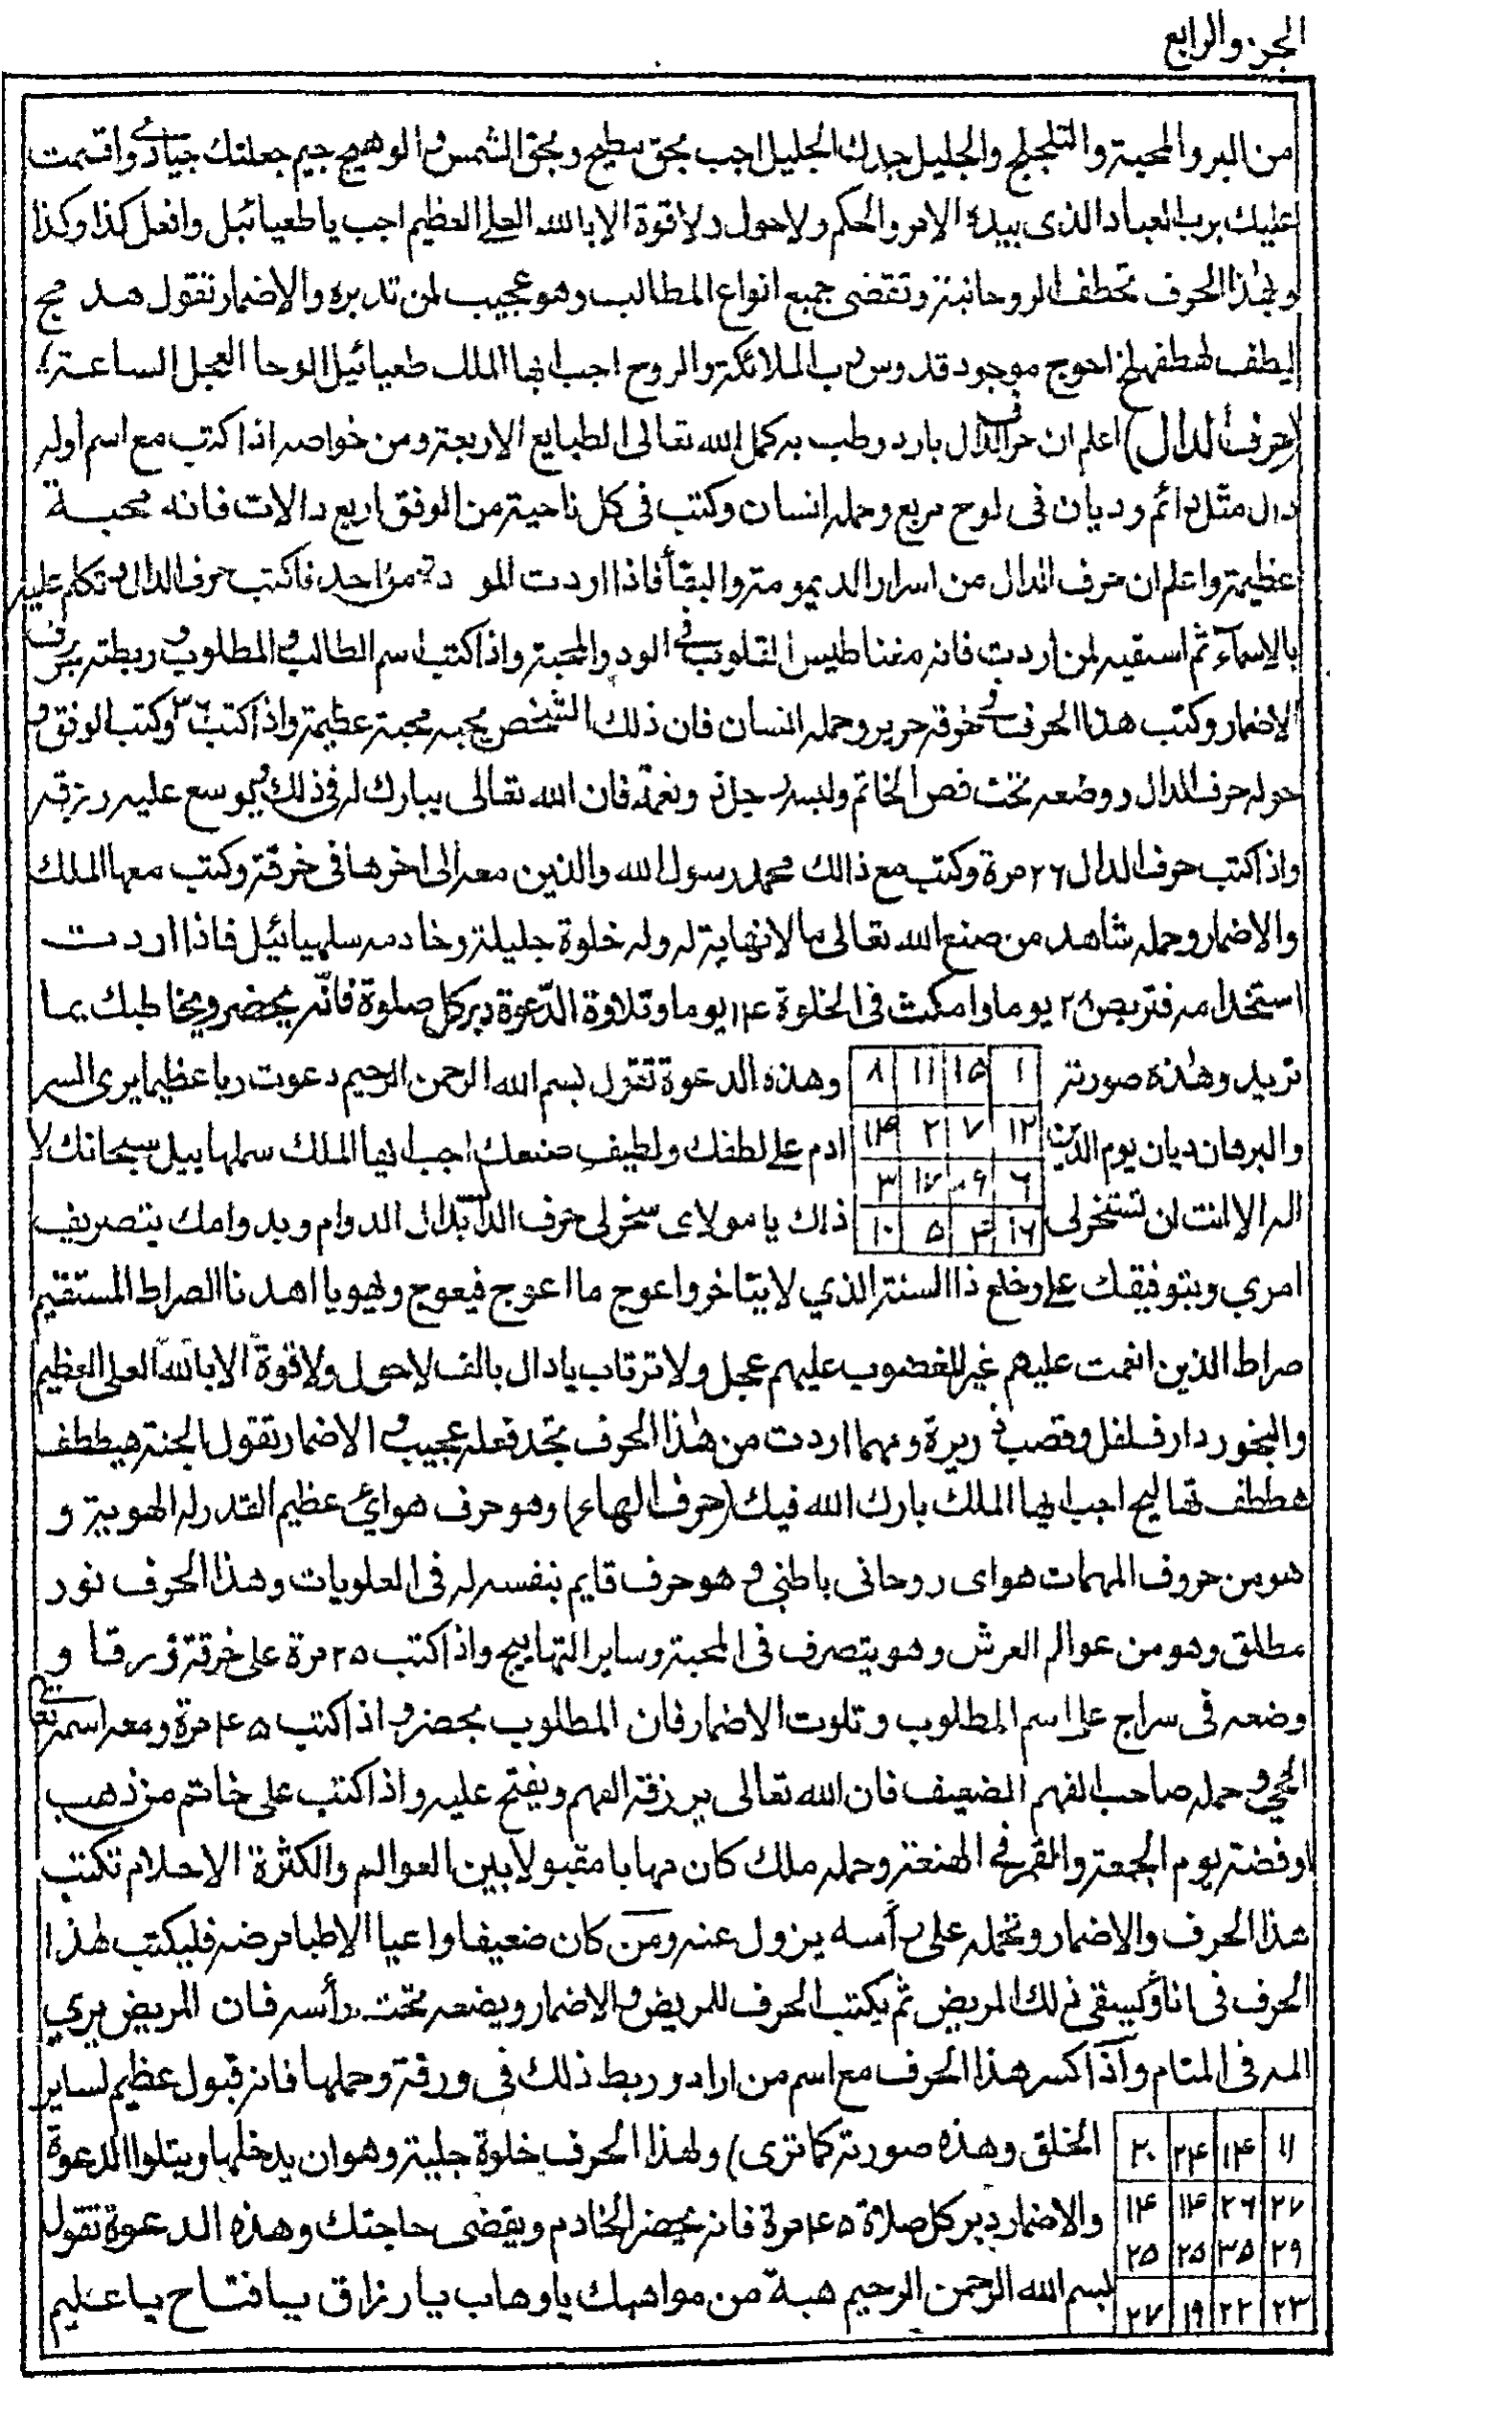 الجزء الرابع
من البر والمحبة والتلجلج والجليل جدك الجليل اجب بحق سطيح وبحق الشمس والوهيج جيم جعلتك جيادى واقسمت
عليك برب العباد الذى بيده الامر والحكم ولاحول ولاقوة الابالله العلى العظيم اجب ياطعيائيل وافعل كذا وكذا
ولهذا الحرف تخطف الروحانية وتقضى جميع انواع المطالب وهو عجيب لمن تدبره والاضمار تقول هد مج
ليطف لهطفهلخ احوج موجود قدوس رب الملائكة والروح اجب ايها الملك طعيائيل الوحا العجل الساعة
(حرف الدال) اعلم ان حرف الدال بارد رطب به كمل الله تعالى الطبايع الاربعة ومن خواصه اذا كتب مع اسم اوله
دال مثل دائم وديان فى لوح مربع وحمله انسان وكتب فى كل ناحية من الوفق اربع دالات فانه محبة
عظيمة واعلم ان حرف الدال من اسرار الديمومة والبقأ فاذا اردت المودة من احد فاكتب حرف الدال وتكلم عليه
بالاسمآء ثم اسقيه لمن اردت فانه مغناطيس القلوب فى الود والمحبة واذا كتب اسم الطالب والمطلوب وربطته بحرف
الاضمار وكتب هذا الحرف فى خرقة حرير وحمله انسان فان ذلك الشخص يحبه محبة عظيمة واذا كتب ٣٦ وكتب الوفق و
حوله حرف الدال ووضعه تحت فص الخاتم ولبسه رجل ذو نعمة فان الله تعالى يبارك له فى ذلك ويوسع عليه رزقه
واذا كتب حرف الدال ٢٦ مرة وكتب مع ذالك محمد رسول الله والذين معه الى اخرها فى خرقة وكتب معها الملك
والاضمار وحمله شاهد من صنع الله تعالى مالانهاية له وله خلوة جليلة وخادمه سلهيائيل فاذا اردت
استخدامه فتريض ٢٨ يوما وامكث فى الخلوة ١٤ يوما وتلاوة الدّعوة دبر كل صلوة فانّه يحضر ويخاطبك بما
تريد وهذه صورته ١ ١٥ ١١ ٨ وهذه الدعوة تقول بسم الله الرحمن الرحيم دعوت ربا عظيما يرى السر
والبرهان ديان يوم الدين ١٢ ٧ ٢ ١٣ ادم على لطفك ولطيف صنعك اجب ايها الملك سملهاييل سبحانك لا
٦ ٩ ١٧ ٣
اله الا انت ان تسخر لى ١٦ ٤ ٥ ١٠ ذاك يا مولاى سخر لى حرف الدال بدال الدوام وبدوامك بتصريف
امري وبتوفيقك على وخلع ذا السنة الذي لايتاخر واعوج ما اعوج فيعوج ولهويا اهدنا الصراط المستقيم
صراط الذين انعمت عليهم غير المغضوب عليهم عجل ولاترتاب يادال بالف لاحول ولاقوة الابالله العلى العظيم
والبخور دار فلفل وقصب ذريرة ومهما اردت من هذا الحرف تجد فعله عجيب والاضمار تقول الجنة هيططف
هططف تهاليح اجب ايها الملك بارك الله فيك (حرف الهاء) وهو حرف هوائي عظيم القدر له الهوية و
هو من حروف المهمات هواى روحانى باطنى وهو حرف قايم بنفسه له فى العلويات وهذا الحرف نور
مطلق وهو من عوالم العرش وهو يتصرف فى المحبة وساير التهابيج واذا كتب ٢٥ مرة على خرقة زرقا و
وضعه فى سراج على اسم المطلوب وتلوت الاضمار فان المطلوب يحضر واذا كتب ٤٥ مرة ومعه اسمه تعا
المحي وحمله صاحب الفهم الضعيف فان الله تعالى يرزقه الفهم ويفتح عليه واذا كتب على خاتم من ذهب
اوفضة يوم الجمعة والقمر فى الهنعة وحمله ملك كان مهابا مقبولا بين العوالم والكثرة الاحلام تكتب
هذا الحرف والاضمار وتحمله على رأسه يزول عنه ومن كان ضعيفا واعيا الاطبا مرضه فليكتب لهذا
الحرف فى اناء ويسقى ذلك المريض ثم يكتب الحرف للمريض والاضمار ويضعه تحت رأسه فان المريض يري
المه فى المنام واذا كسر هذا الحرف مع اسم من اراد وربط ذلك فى ورقة وحملها فانه قبول عظيم لساير
١١ ١٤ ٢٤ ٢٠ الخلق وهذه صورته كما ترى) ولهذا الحرف خلوة جلية وهو ان يدخلها ويتلوا الدعوة
٢٧ ٢٦ ١٤ ١٤ والاضمار دبر كل صلاة ٤٥ مرة فانه يحضر الخادم ويقضى حاجتك وهذه الدعوة تقول
٢٩ ٣٥ ٢٥ ٢٥
٢٣ ٢٢ ١٩ ٢٧ بسم الله الرحمن الرحيم هبة من مواهبك ياوهاب يارزاق يافتاح ياعليم